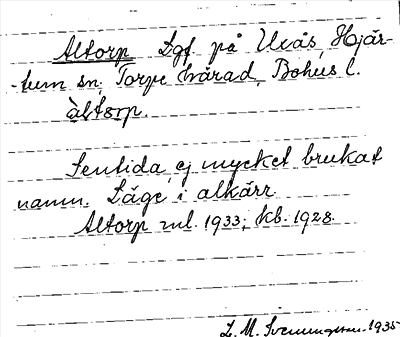 Altorp Lgt på Uxås, Hjär-
-tum sn, Torpe härad, Bohus l.
àltɔrp.
Sentida, ej mycket brukat
namn. Läge i alkärr.
Altorp ml. 1933; kb. 1928
L. M. Svenungsson. 1935